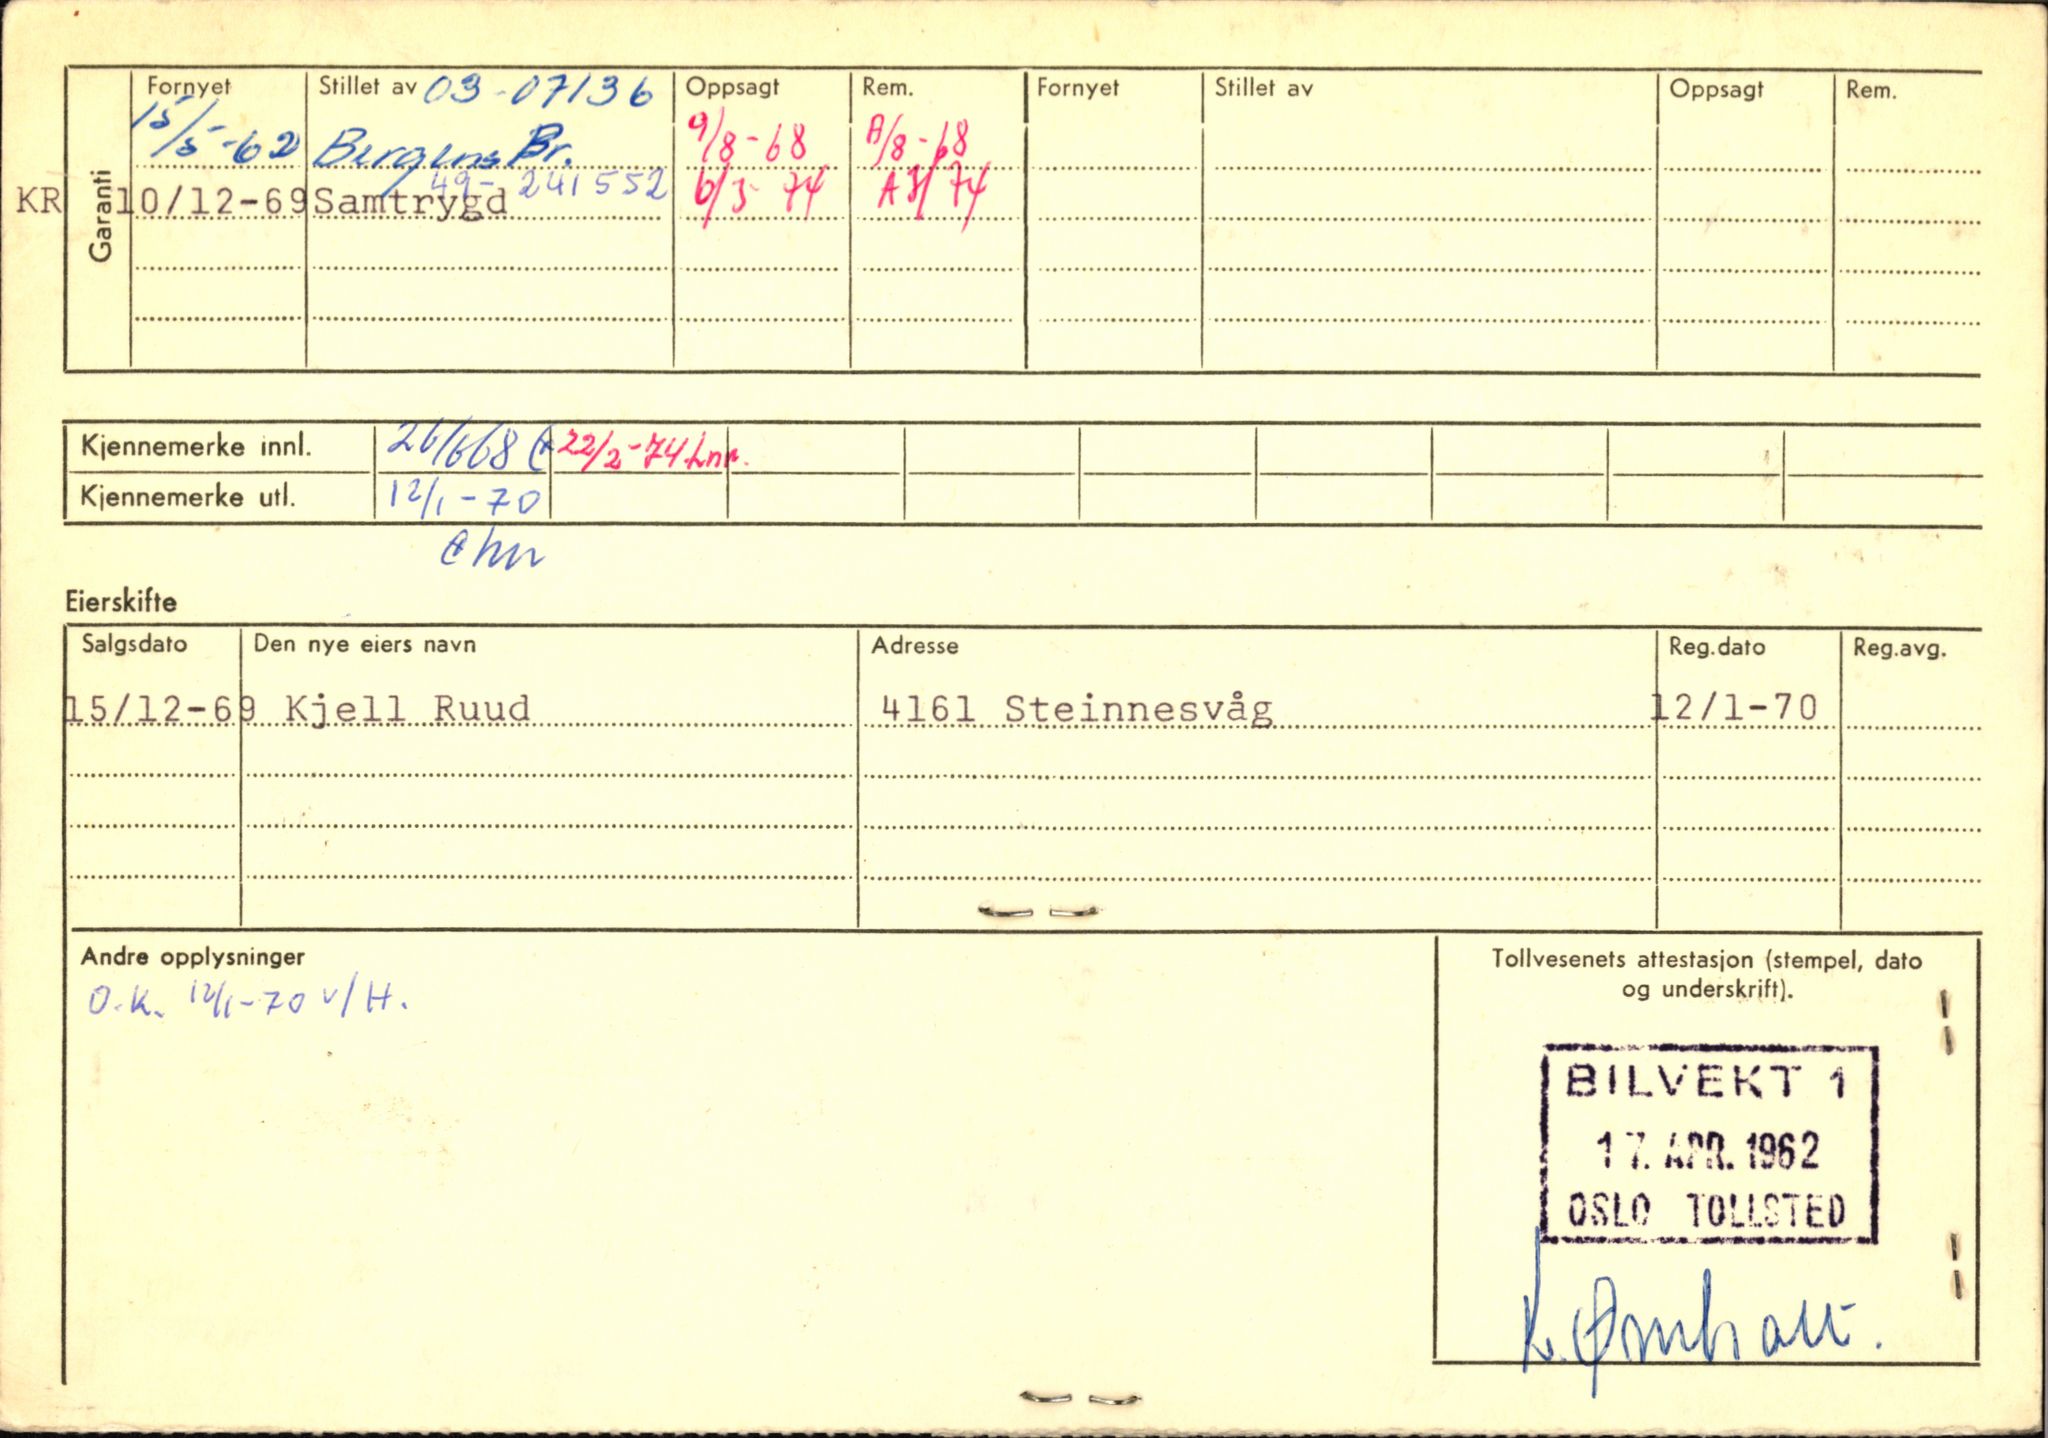 Fornyet Stillet av 03-07136 Oppsagt Rem. Fornyet Stillet av Oppsagt Rem.
15/5-62 Bergens Br. 9/8-68 A/8-68
49-241552 6/3 74 A3/74
KR 10/12-69 Samtrygd
Garanti
Kjennemerke innl. 26/668 22/2-74 Lnr.
Kjennemerke utl. 12/1-70
Eierskifte
Salgsdato Den nye eiers navn Adresse Reg.dato Reg.avg.
15/12-69 Kjell Ruud 4161 Steinnesvåg 12/1-70
Andre opplysninger
O.K. 12/1-70 v/H.
Tollvesenets attestasjon (stempel, dato
og underskrift).
BILVEKT 1
17. APR. 1962
OSLO TOLLSTED